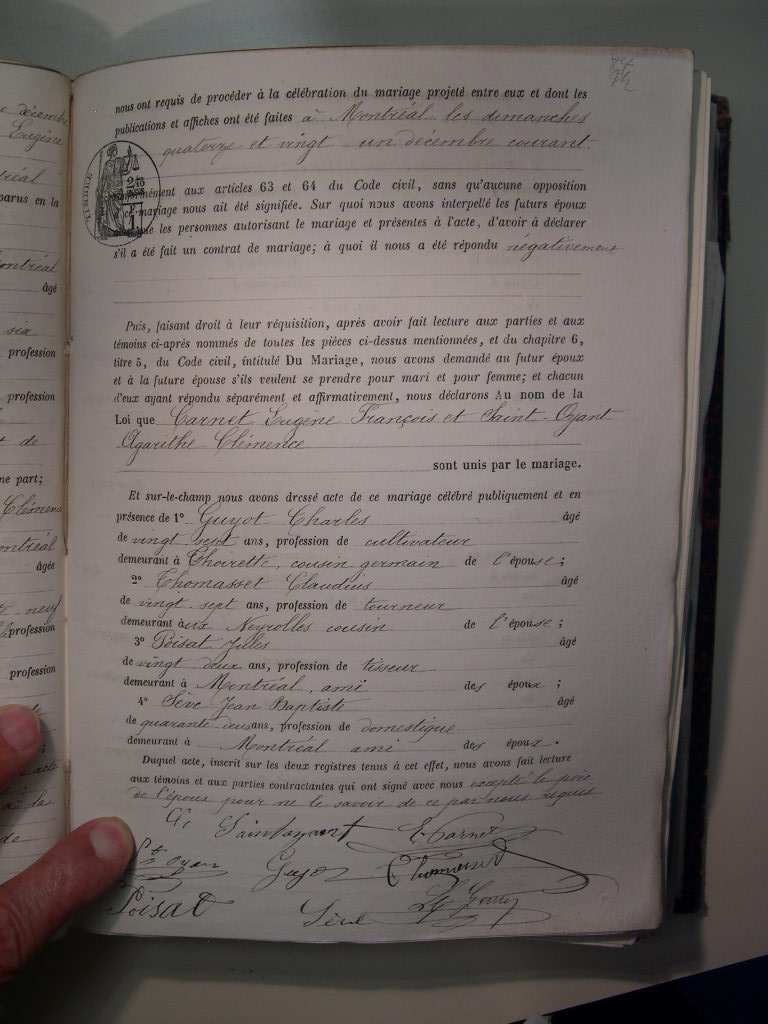 décembre
Eugène
parus en la
ontréal
âgé
six
profession
profession
t de
ne part;
Clémen
ontréal
âgée
neuf
profession
profession
acte
à la
de
nous ont requis de procéder à la célébration du mariage projeté entre eux et dont les
publications et affiches ont été faites à Montréal les dimanches
quatorze et vingt un décembre courant.
TIMBRE
conformément aux articles 63 et 64 du Code civil, sans qu'aucune opposition
ce mariage nous ait été signifiée. Sur quoi nous avons interpellé les futurs époux
que les personnes autorisant le mariage et présentes à l'acte, d'avoir à déclarer
s'il a été fait un contrat de mariage; à quoi il nous a été répondu négativement
Puis, faisant droit à leur réquisition, après avoir fait lecture aux parties et aux
témoins ci-après nommés de toutes les pièces ci-dessus mentionnées, et du chapitre 6,
titre 5, du Code civil, intitulé Du Mariage, nous avons demandé au futur époux
et à la future épouse s'ils veulent se prendre pour mari et pour femme; et chacun
d'eux ayant répondu séparément et affirmativement, nous déclarons Au nom de la
Loi que Carnet Eugène François et Saint-Oyant
Agarithe Clémence
sont unis par le mariage.
Et sur-le-champ nous avons dressé acte de ce mariage célébré publiquement et en
présence de 1° Guyot Charles âgé
de vingt sept ans, profession de cultivateur
demeurant à Thoirette, cousin germain de l'épouse;
2° Thomasset Claudius âgé
de vingt sept ans, profession de tourneur
demeurant aux Neyrolles cousin de l'épouse;
3° Poisat Jules âgé
de vingt deux ans, profession de tisseur
demeurant à Montréal, ami des époux;
4° Sève Jean Baptiste âgé
de quarante deux ans, profession de domestique
demeurant à Montréal ami des époux.
Duquel acte, inscrit sur les deux registres tenus à cet effet, nous avons fait lecture
aux témoins et aux parties contractantes qui ont signé avec nous excepté le père
de l'époux pour ne le savoir de ce par nous requis
Saintoyant E Carnet
St Oyan Guyot Thomasset
Poisat Sève